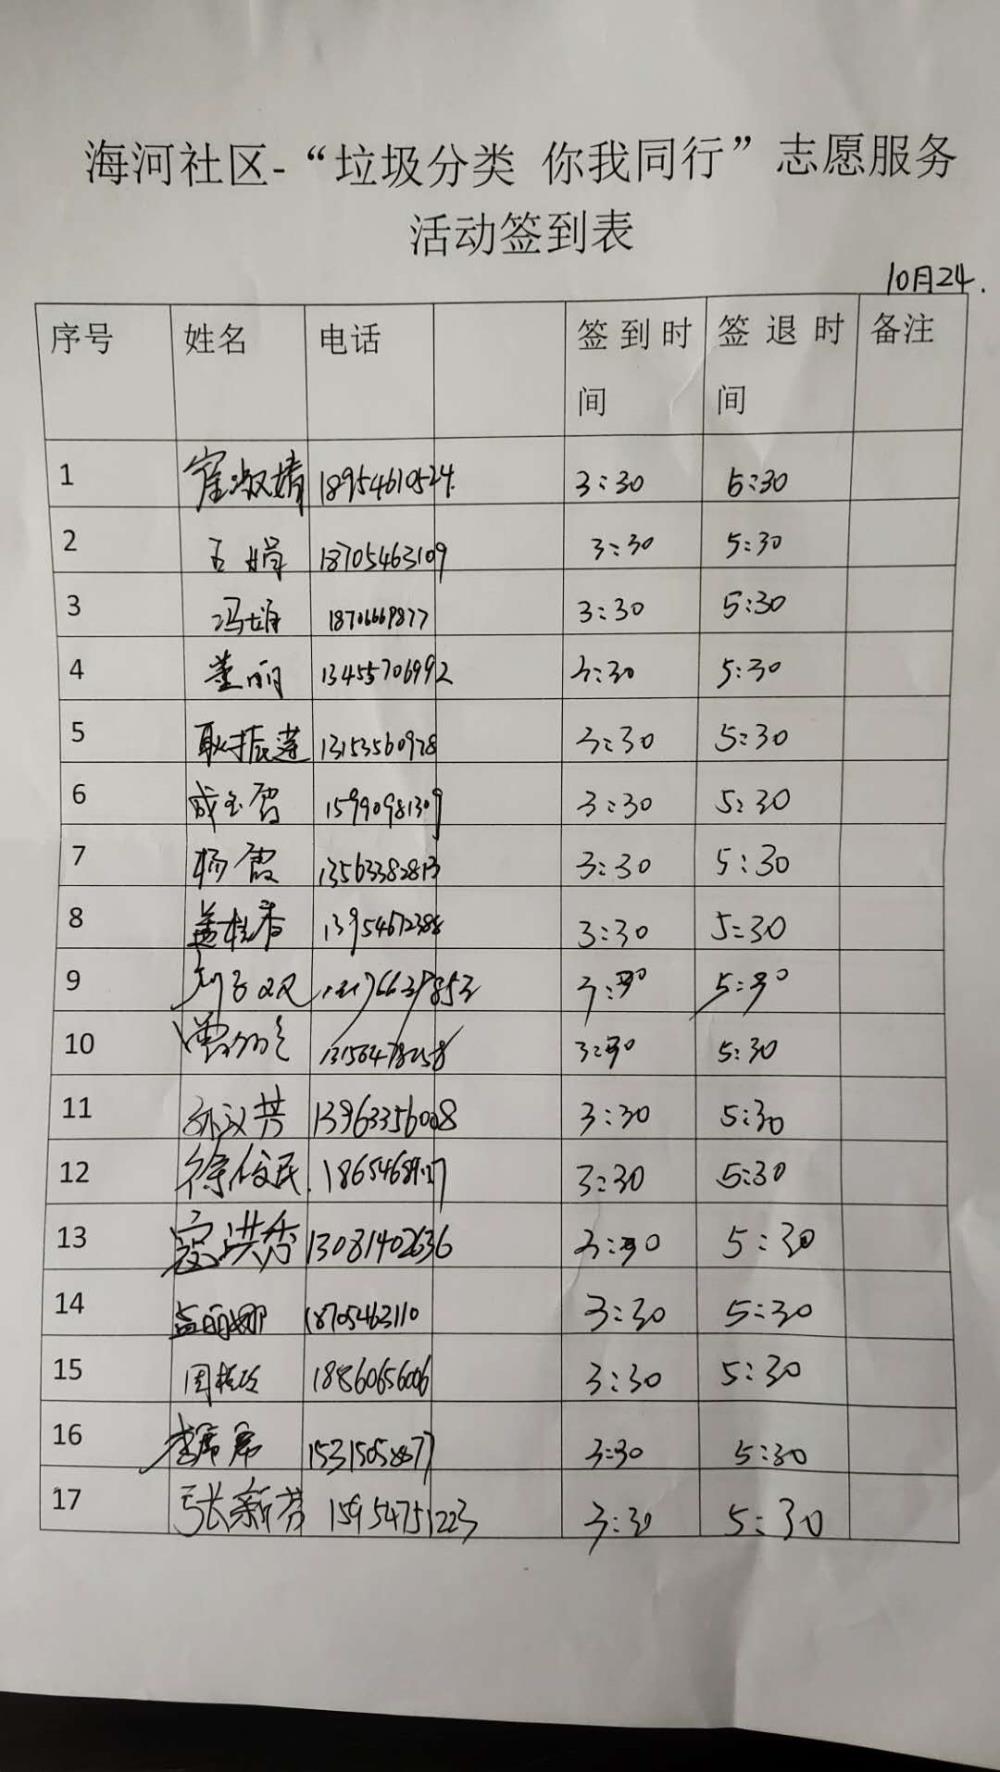 海河社区-“垃圾分类 你我同行”志愿服务
活动签到表
10月24.
序号 姓名 电话 签到时间 签退时间 备注
1 崔淑婧 18954610524. 3:30 5:30
2 王娟 18705463109 3:30 5:30
3 冯娟 18706669877 3:30 5:30
4 董丽 13455706992 3:30 5:30
5 耿振莲 13153560978 3:30 5:30
6 成玉 15990981309 3:30 5:30
7 杨霞 13563382813 3:30 5:30
8 盖桂香 13954672388 3:30 5:30
9 3:30 5:30
10 3:30 5:30
11 孙汉芳 13963356008 3:30 5:30
12 徐俊民. 3:30 5:30
13 寇洪香 13081402636 3:30 5:30
14 孟丽娜 18705463110 3:30 5:30
15 周 18860656006 3:30 5:30
16 李 15315058677 3:30 5:30
17 张新芳 15954751223 3:30 5:30